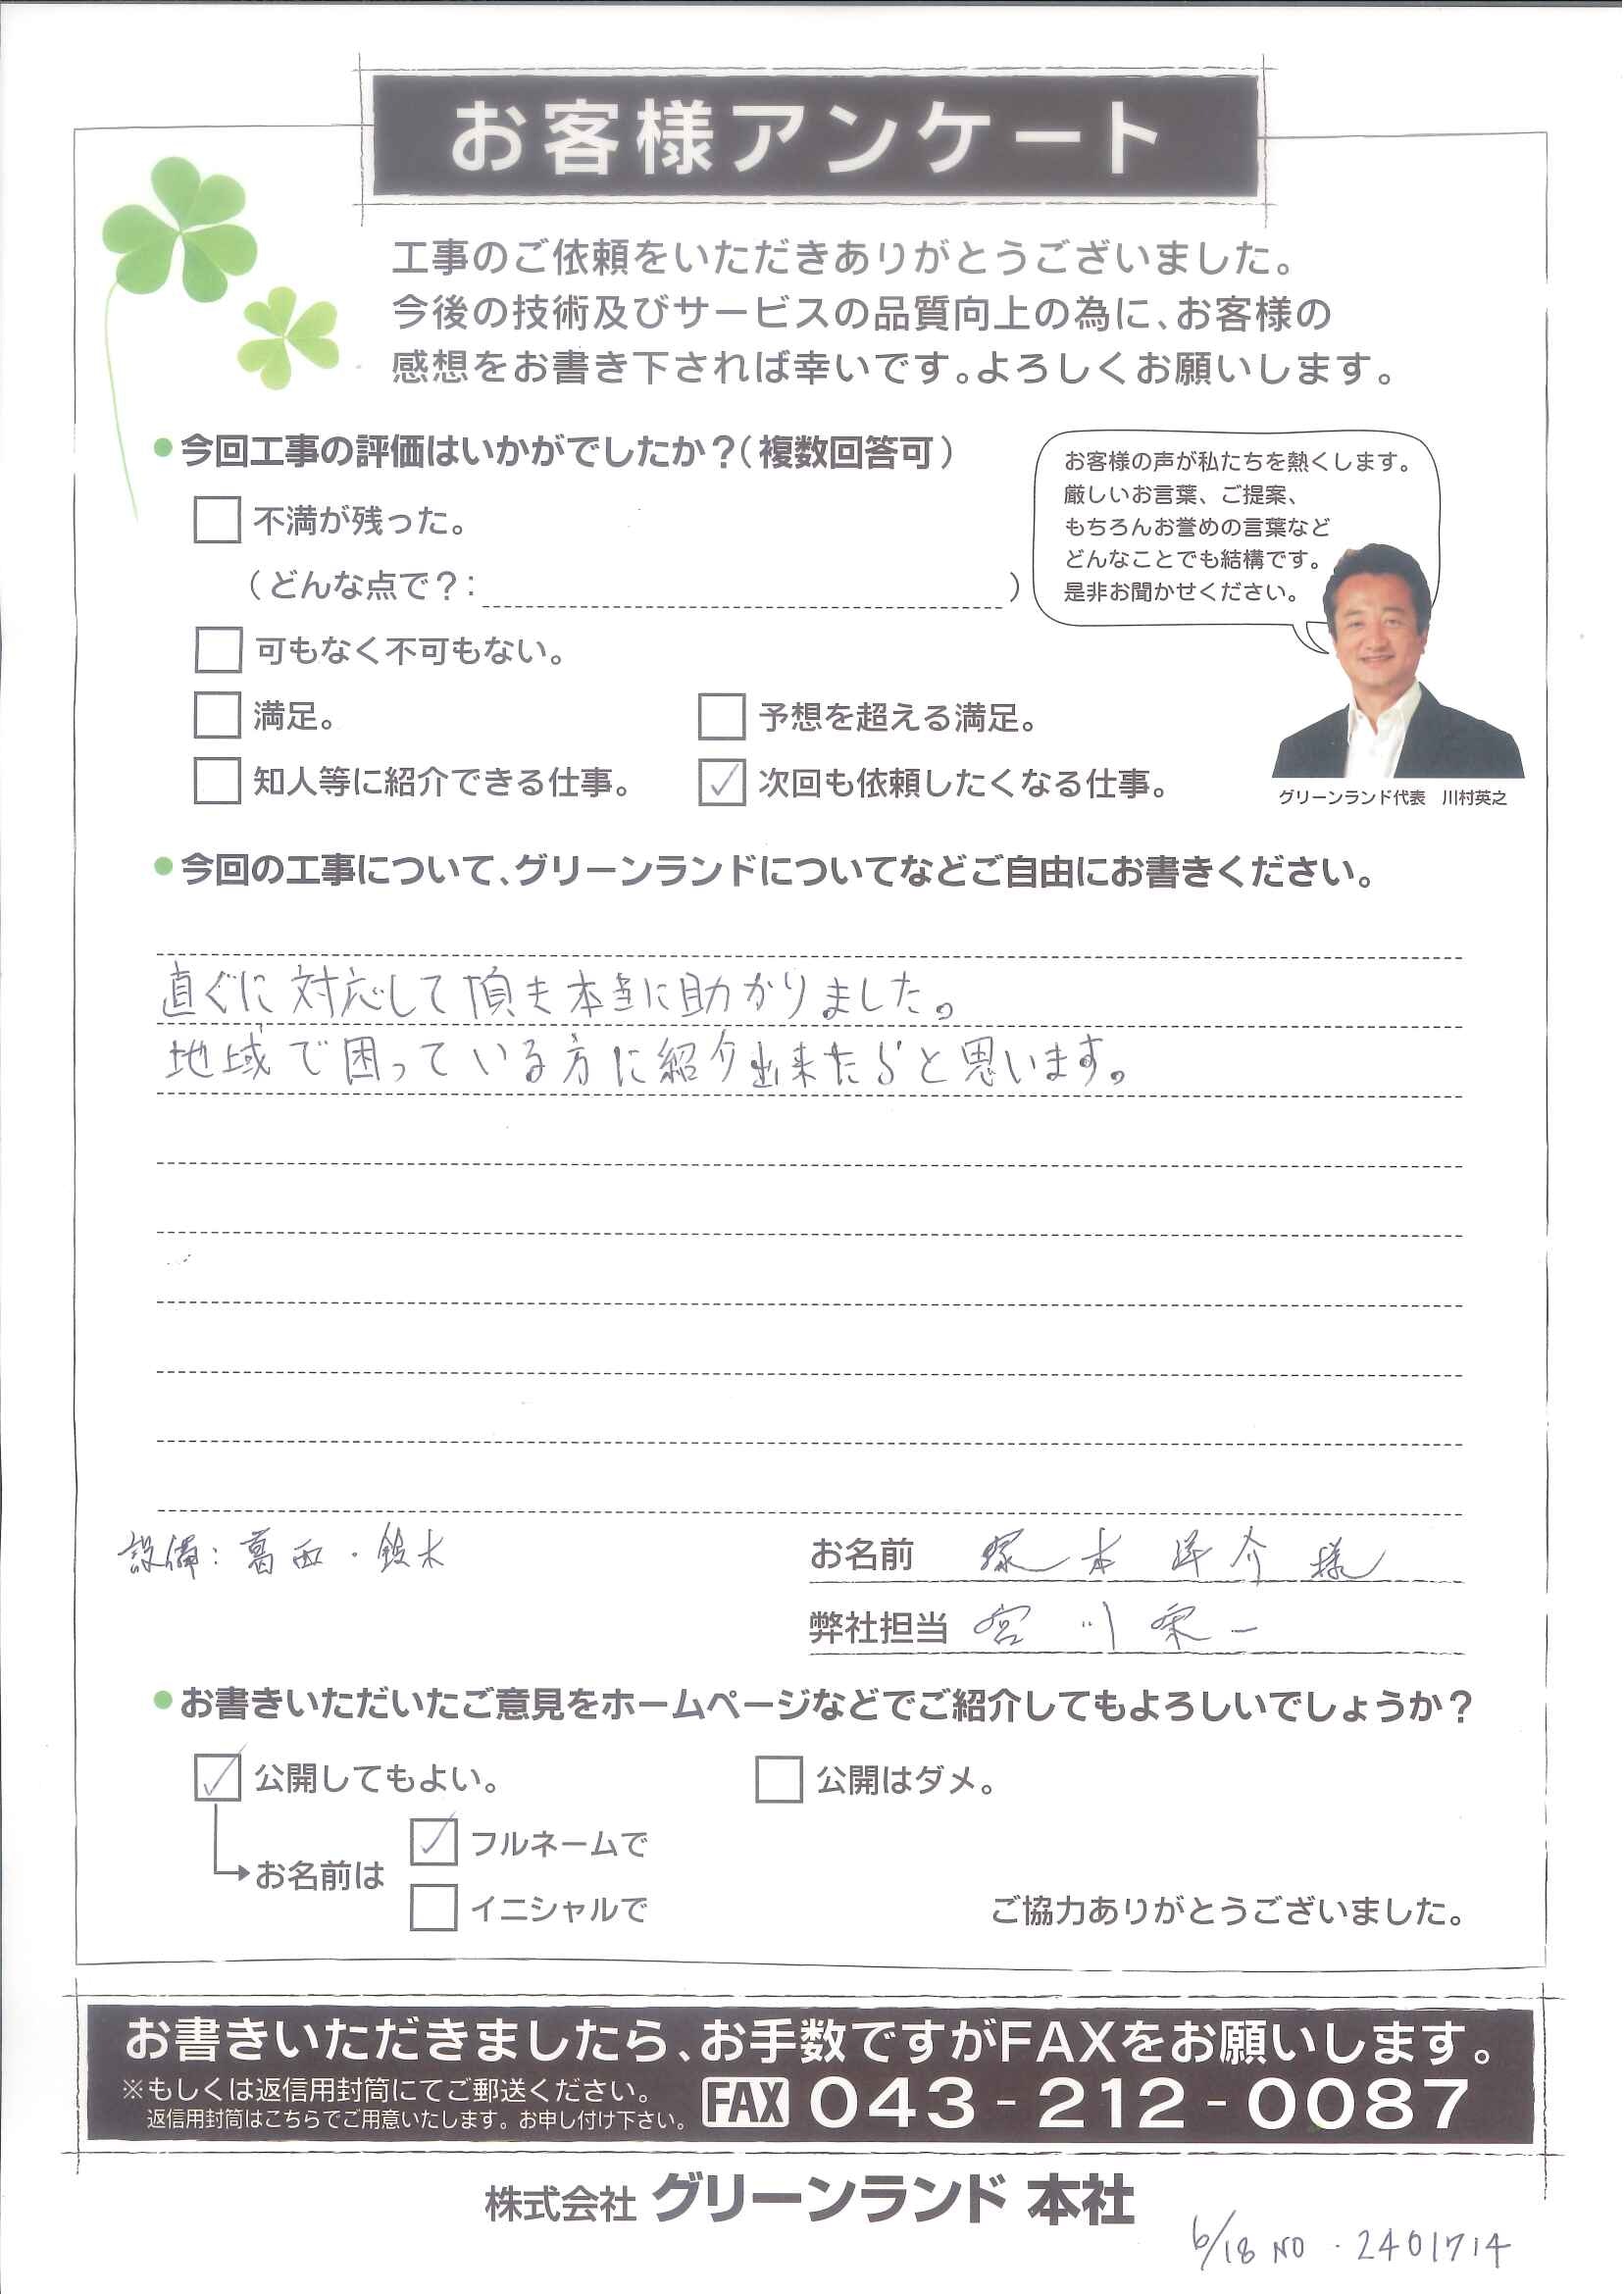 お客様アンケート
工事のご依頼をいただきありがとうございました。
今後の技術及びサービスの品質向上の為に、お客様の
感想をお書き下されば幸いです。よろしくお願いします。
●今回工事の評価はいかがでしたか？（複数回答可）
お客様の声が私たちを熱くします。
厳しいお言葉、ご提案、
もちろんお誉めの言葉など
どんなことでも結構です。
是非お聞かせください。
不満が残った。
（どんな点で？： ）
可もなく不可もない。
満足。 予想を超える満足。
知人等に紹介できる仕事。 ✓ 次回も依頼したくなる仕事。
グリーンランド代表　川村英之
●今回の工事について、グリーンランドについてなどご自由にお書きください。
直ぐに対応して頂き本当に助かりました。
地域で困っている方に紹介出来たらと思います。
設備：葛西・鈴木
お名前 塚本 洋介 様
弊社担当 宮川 栄一
●お書きいただいたご意見をホームページなどでご紹介してもよろしいでしょうか？
✓ 公開してもよい。 公開はダメ。
お名前は ✓ フルネームで
イニシャルで
ご協力ありがとうございました。
お書きいただきましたら、お手数ですがFAXをお願いします。
※もしくは返信用封筒にてご郵送ください。
返信用封筒はこちらでご用意いたします。お申し付け下さい。
FAX 043-212-0087
株式会社 グリーンランド 本社
6/18 NO.2401714